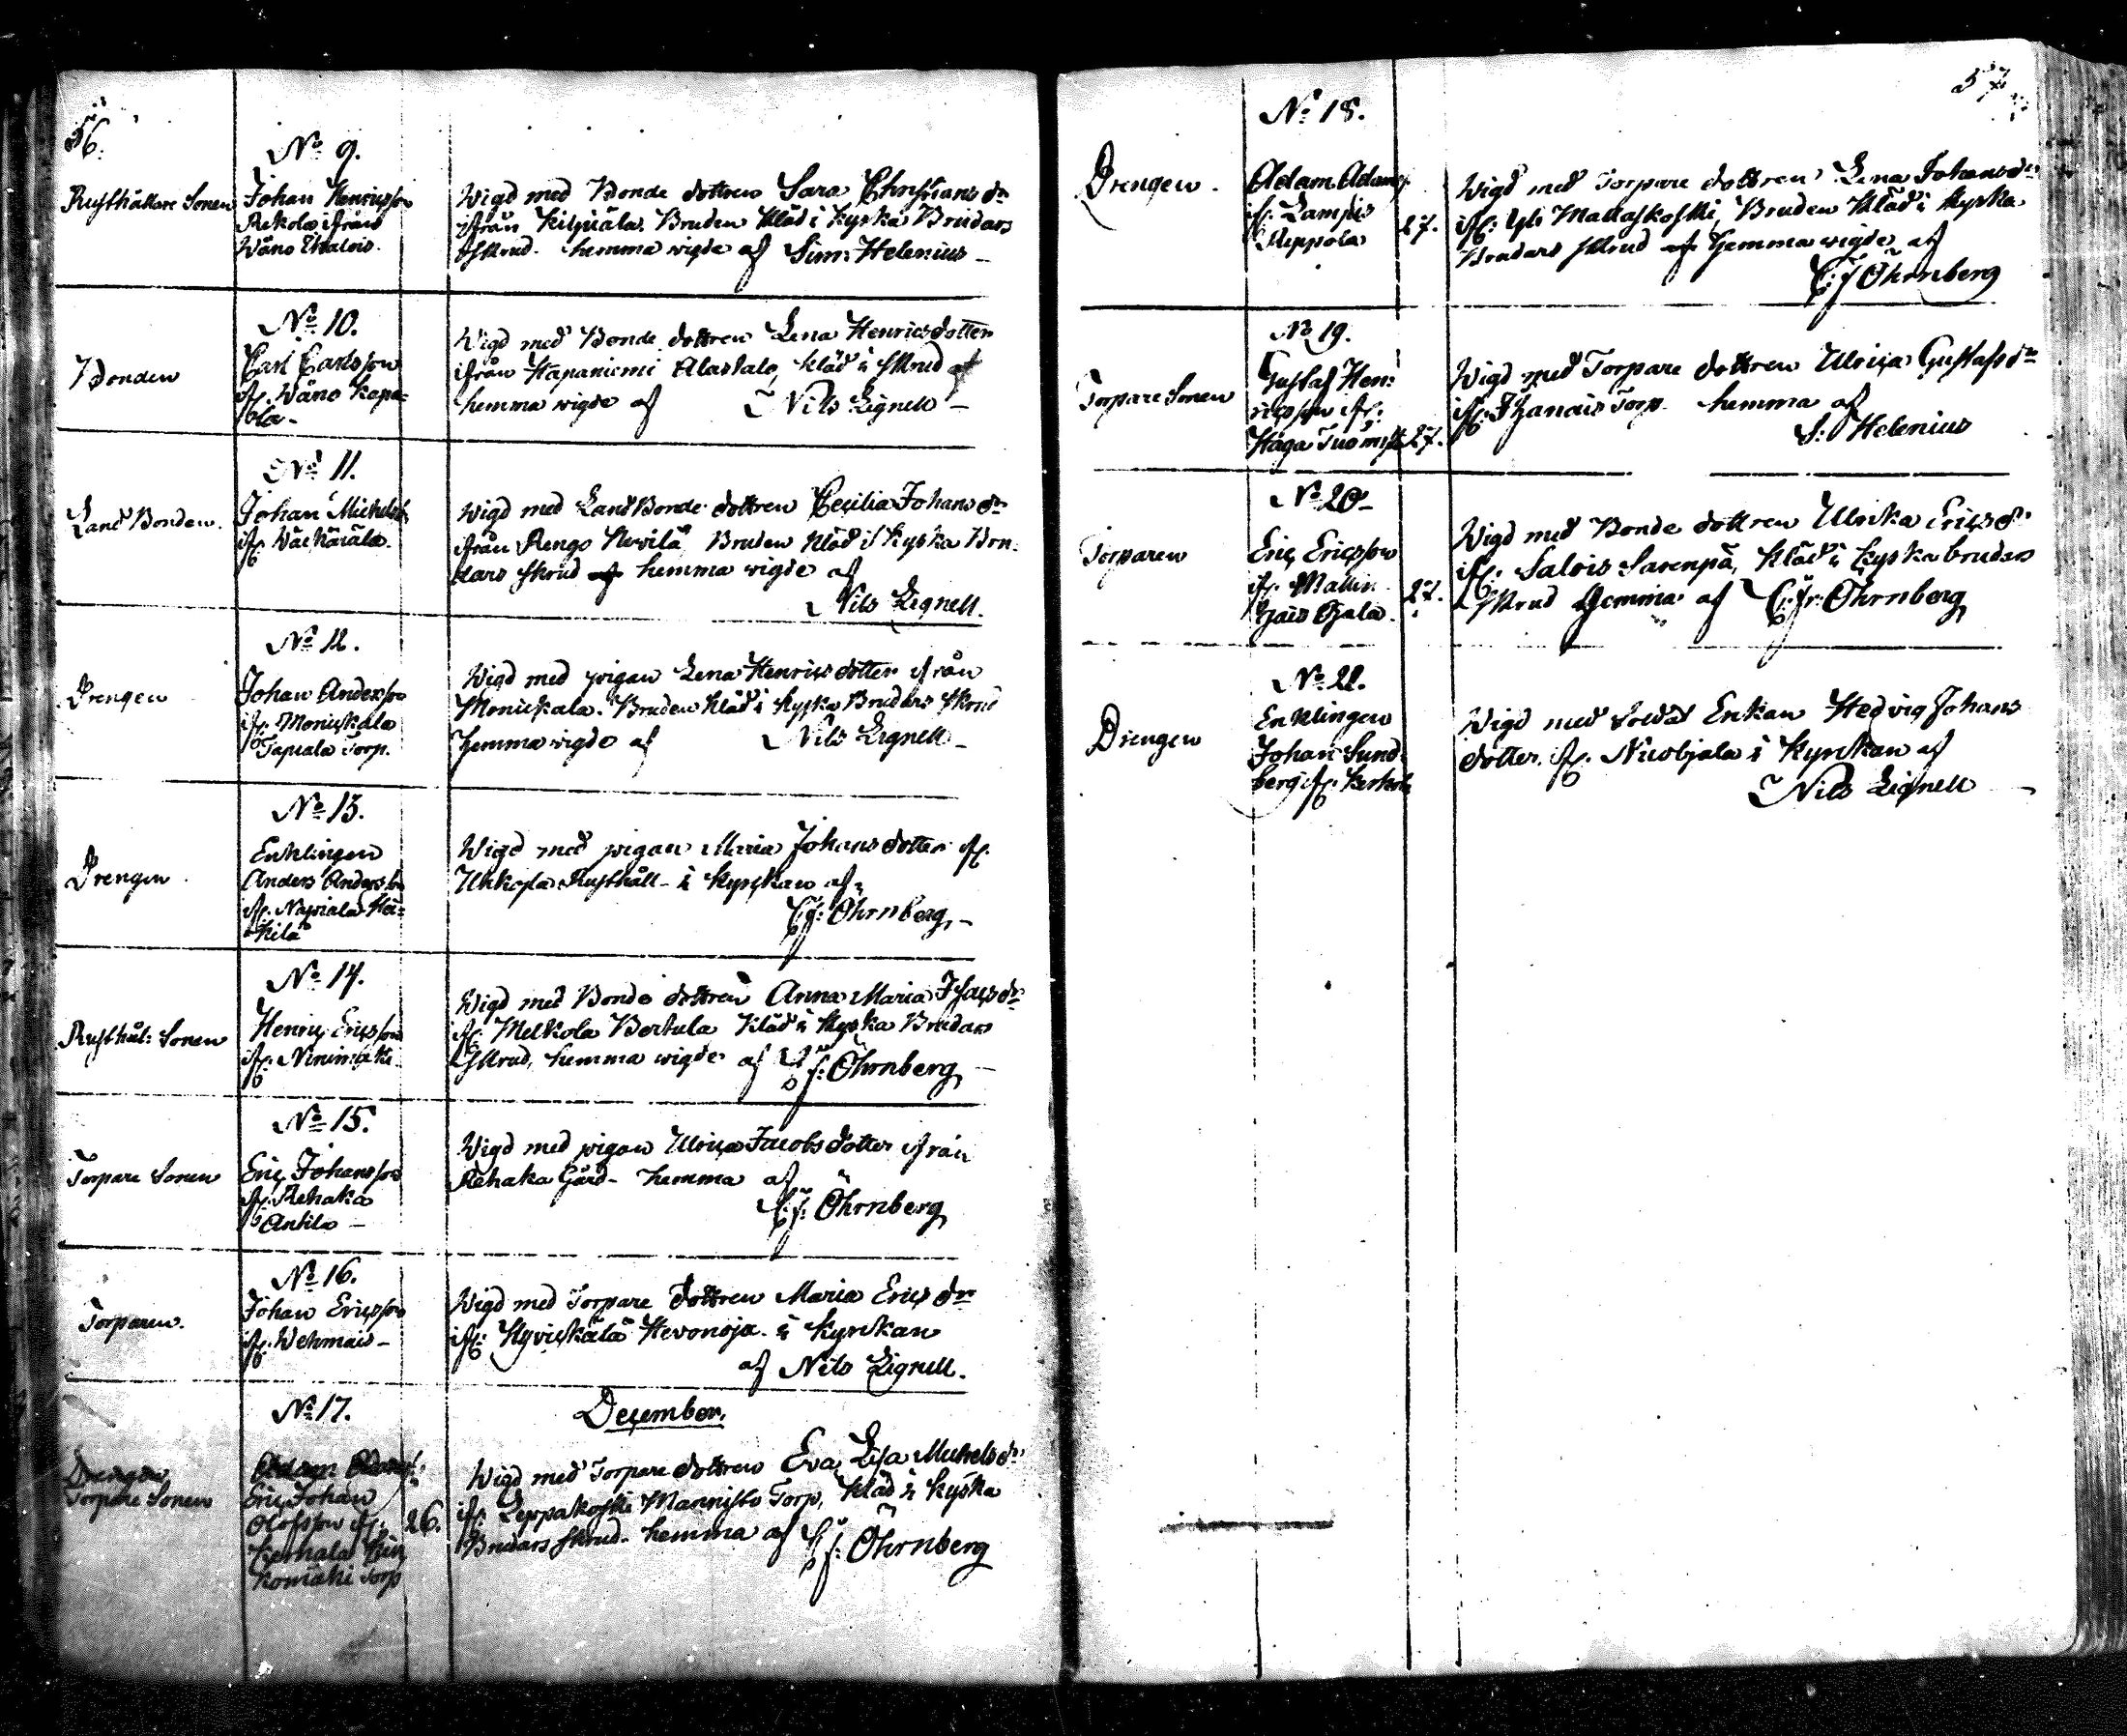 56.
No 9.
Rusthållare Sonen
Johan Henricsson
Rekola ifrån
Wåno Uhalois.
Wigd med Bonde dottren Sara Christians dr
ifrån Kilpiälä Bruden kläd i kyrko Brudars
skrud. hemma wigde af Sim: Helenius
No 10.
Bonden
Carl Carlsson
ifr. Wåno Kapa=
ola
Wigd med Bonde dottren Lena Henricsdotter
ifrån Hapaniemi Alastalo, kläd i skrud af
hemma wigde af Nils Lignell
No 11.
Land Bonden.
Johan Michelss
ifr.
Wigd med Land Bonde dottren Cecilia Johans dr
ifrån Rengo Heikilä Bruden kläd i kyrko Bru=
dars skrud af hemma wigde af
Nils Lignell.
No 12.
Drengen
Johan Andersson
ifr. Monickala
Tapiala Torp.
Wigd med pigan Lena Henrics dotter ifrån
Monickala. Bruden kläd i kyrko Brudars skrud
hemma wigde af Nils Lignell
No 13.
Drengen
Enklingen
Anders Andersson
ifr. Napiala Hei=
kilä
Wigd med pigan Maria Johans dotter ifr.
Uhkoila Rusthåll - i kyrckan af
C: J: Öhrnberg
No 14.
Rusthål: Sonen
Henric Ericsson
ifr. Ninimäki
Wigd med Bonde dottren Anna Maria Isacs dr
ifr. Melkola Bertula kläd i kyrko Brudars
skrud, hemma wigde af C: J: Öhrnberg
No 15.
Torpare Sonen
Eric Johansson
ifr. Rehaka
Antila
Wigd med pigan Ulrica Jacobs dotter ifrån
Rehaka Gård - hemma af
C: J: Öhrnberg
No 16.
Torparen.
Johan Ericsson
ifr. Wehmais
Wigd med Torpare dottren Maria Erics dr
ifr: Hyvickälä Hevonoja. i kyrckan
af Nils Lignell.
No 17.
December.
Drengen
Torpare Sonen
Eric Johan
Olofsson ifr.
komäki Torp
26.
Wigd med Torpare dottren Eva Lisa Michels dr
ifr. Leppakoski Mannisto Torp, kläd i kyrko
Brudars skrud - hemma af C: J: Öhrnberg
57
No 18.
Drengen.
Adam Adamss.
ifr. Lampis
Reppola
27.
Wigd med Torpare dottren Lena Johans dr
ifr: Yli Mattaskoski, Bruden kläd i kyrko
Brudars skrud af hemma wigde af
C: J Öhrnberg
No 19.
Torpare Sonen
Gustaf Hen:
ricsson ifr:
Haga Tuomisto
27.
Wigd med Torpare dottren Ulrica Gustafs dr
ifr. Torp. hemma af
S: Helenius
No 20
Torparen
Eric Ericsson
ifr. Mallin=
Ojala.
27.
Wigd med Bonde dottren Ulrika Erics dr
ifr. Salois Sarenpä, kläd i kyrko brudars
skrud hemma af C: Jr: Öhrnberg
No 21.
Drengen
Enklingen
Johan Sund=
berg ifr. Kerkola
Wigd med Soldat Enkan Hedvig Johans
dotter. ifr. Nuobjala i kyrckan af
Nils Lignell